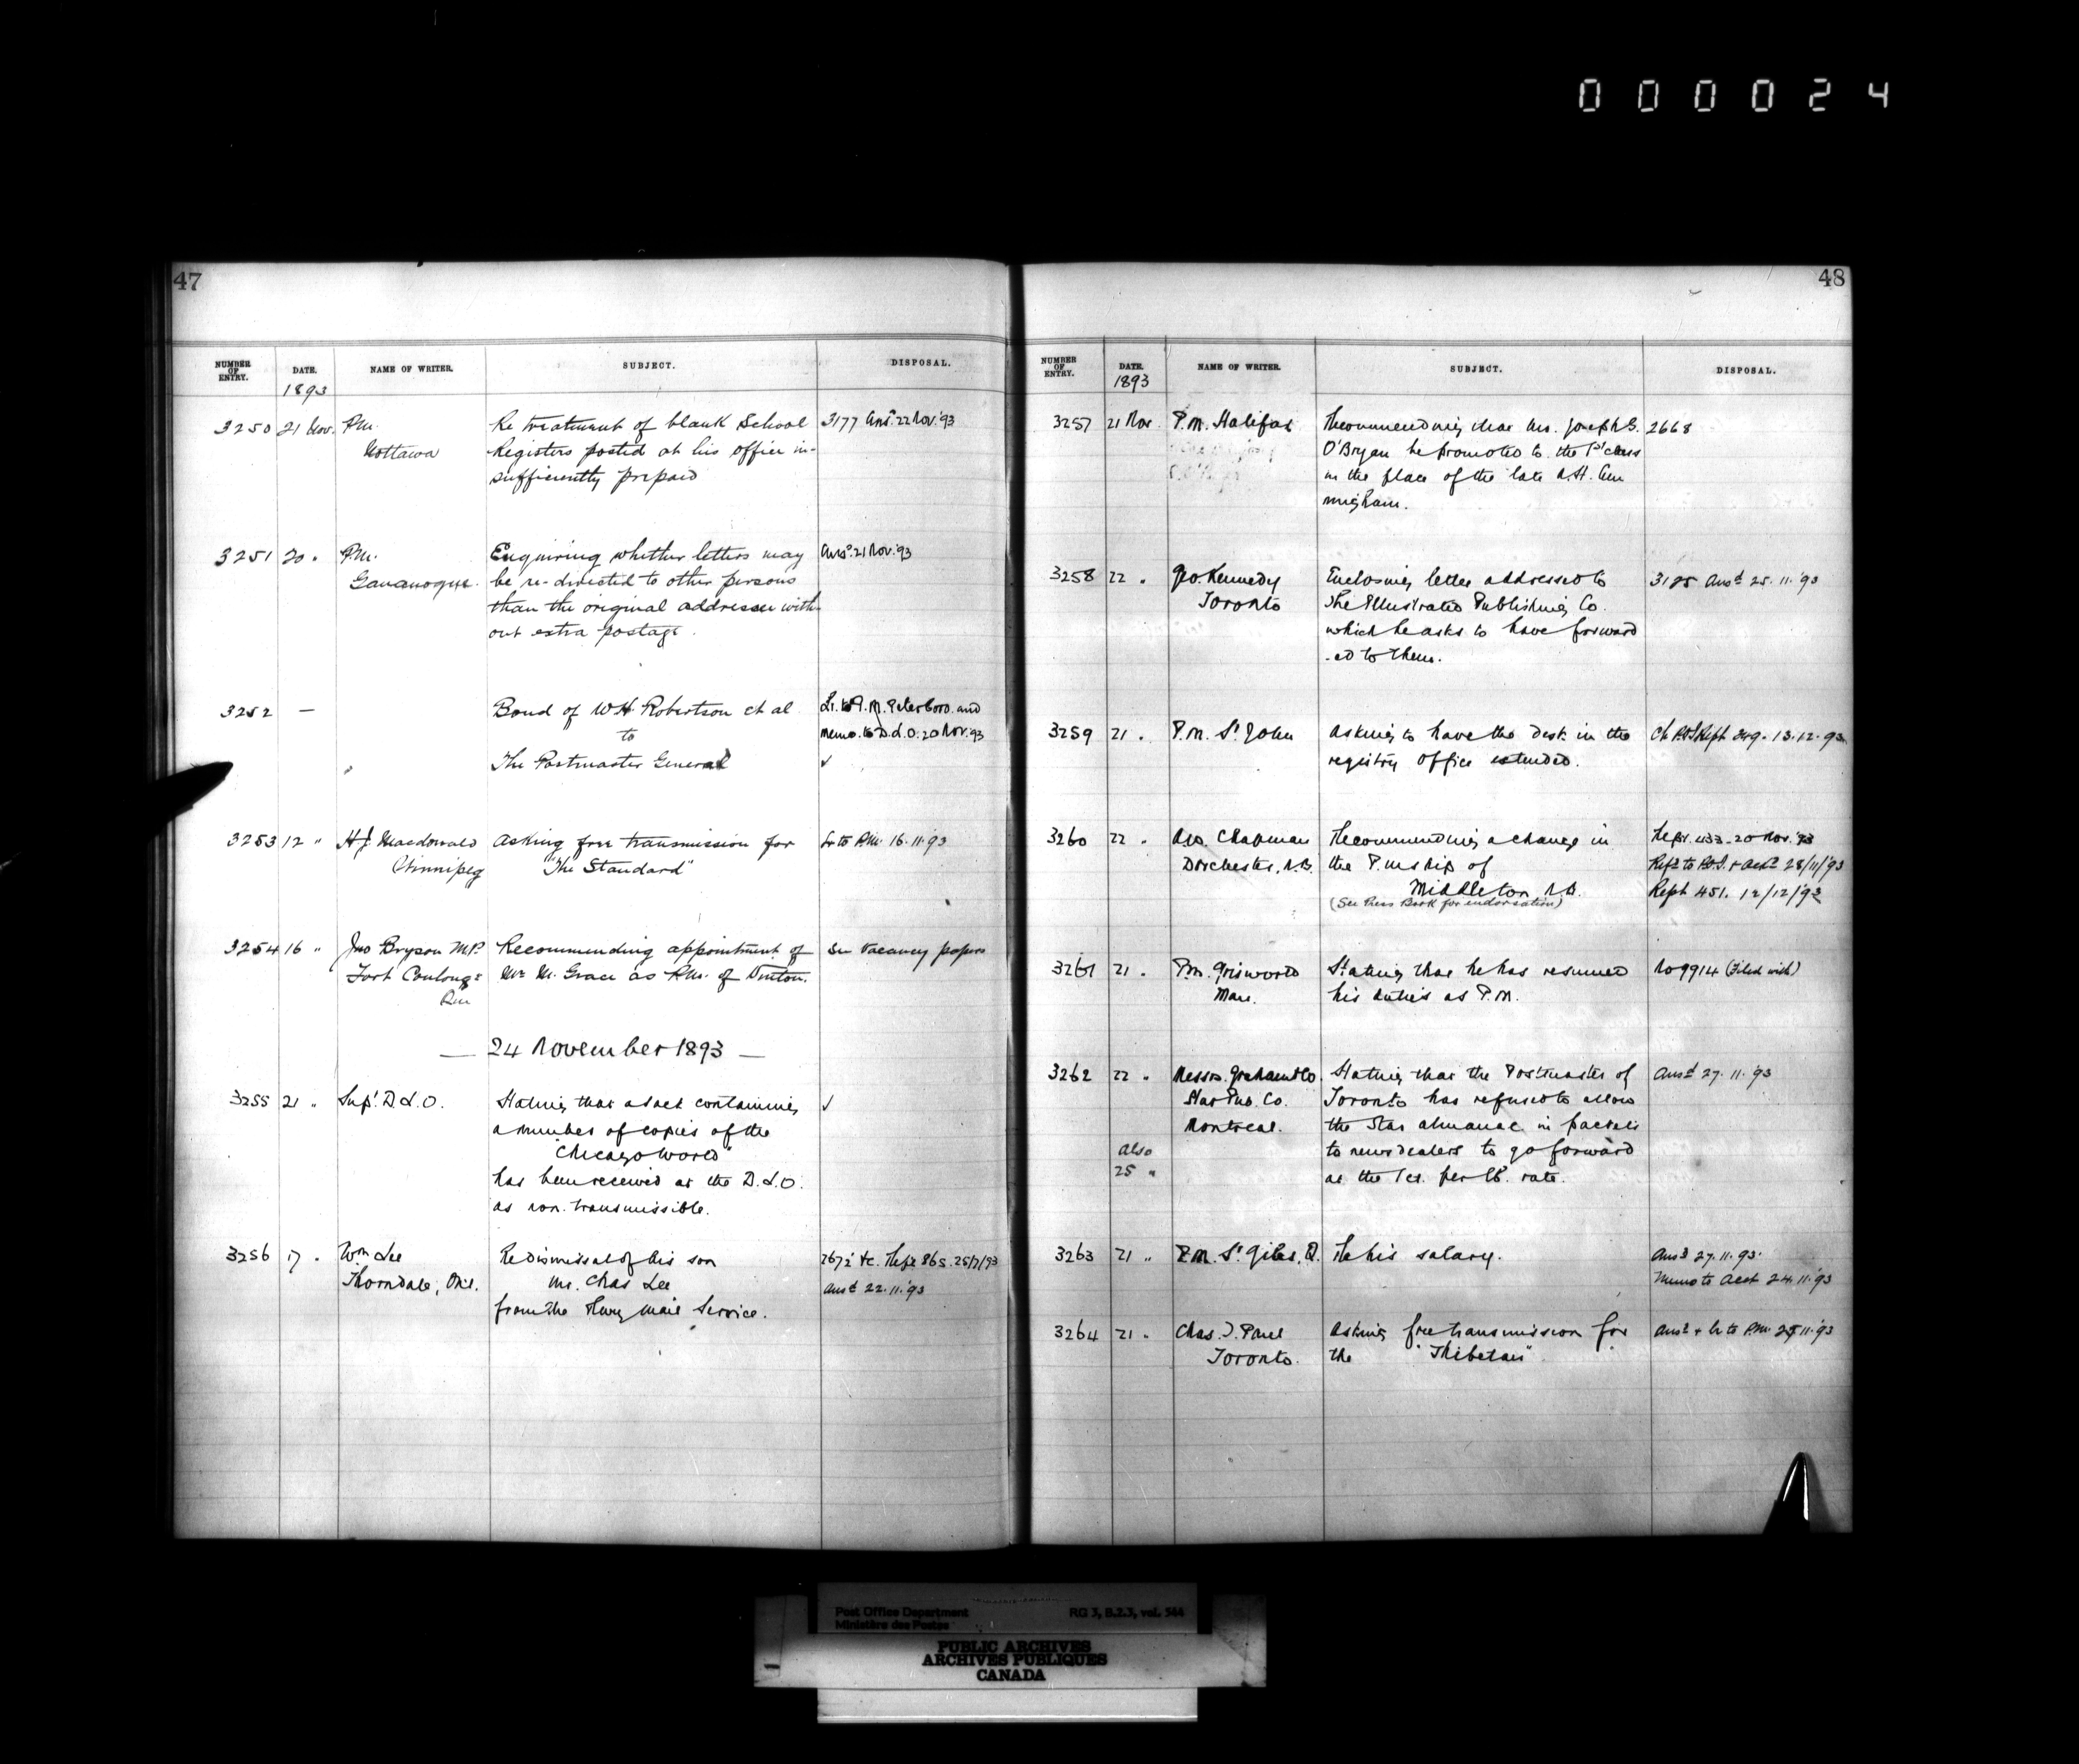 000024
47
NUMBER OF ENTRY. DATE. NAME OF WRITER. SUBJECT. DISPOSAL.
1893
3250 21 Nov. P.M. Re treatment of blank School 3177 Ans. 22 Nov. '93
Nottawa Registers posted at his office in-
sufficiently prepaid
3251 20 " P.M. Enquiring whether letters may Ansd. 21 Nov. '93
Gananoque. be re-directed to other persons
than the original addressee with-
out extra postage.
3252 — Bond of W.H. Robertson et al Lr. to P.M. Peterboro and
to memo. to D.L.O. 20 Nov. 93
The Postmaster General ✓
3253 12 " H J Macdonald Asking free transmission for Lr to P.M. 16.11.93
Winnipeg "The Standard"
3254 16 " Jno Bryson M.P. Recommending appointment of See Vacancy papers
Fort Coulonge Mr M. Grace as P.M. of Vinton.
Que
— 24 November 1893 —
3255 21 " Supt. D.L.O. Stating that a sack containing ✓
a number of copies of the
"Chicago World"
has been received at the D.L.O.
as non-transmissible.
3256 17 " Wm Lee Re dismissal of his son 2672 &c. Rept 865. 25/7/93
Thorndale, Ont. Mr. Chas Lee Ansd 22.11.'93
from the Rwy Mail Service.
48
NUMBER OF ENTRY. DATE. NAME OF WRITER. SUBJECT. DISPOSAL.
1893
3257 21 Nov P.M. Halifax Recommending that Mr. Joseph S. 2668
O'Bryan be promoted to the 1st class
in the place of the late A.H. Cun
ningham.
3258 22 " Geo. Kennedy Enclosing letter addressed to 3185 Ansd 25.11.'93
Toronto The Illustrated Publishing Co.
which he asks to have forward
-ed to them.
3259 21 " P.M. St John Asking to have the desk in the Ch P.O.I Rept 349. 13.12.93.
registry office extended.
3260 22 " Geo. Chapman Recommending a change in Rept. 433. 20 Nov. '93
Dorchester, N.B. the P.mship of Refd to P.O.I. + Ackd 28/11/93
Middleton, N.B. Rept 451. 12/12/93
(See Press Book for endorsation)
3261 21 " P.M. Griswold Stating that he has resumed No 9914 (Filed with)
Man. his duties as P.M.
3262 22 " Messrs. Graham & Co. Stating that the Postmaster of Ansd 27.11.'93
Star Pub. Co. Toronto has refused to allow
Montreal. the Star almanac in packets
also to newsdealers to go forward
25 " at the 1ct. per lb. rate.
3263 21 " P.M. St Giles, Q. Re his salary. Ansd 27.11.93.
Memo to Acct 24.11.'93
3264 21 " Chas. J. Paul Asking free transmission for Ansd + lr to P.M. 25.11.'93
Toronto. the "Thibetan"
Post Office Department RG 3, B.2.3, vol. 544
Ministère des Postes
PUBLIC ARCHIVES
ARCHIVES PUBLIQUES
CANADA